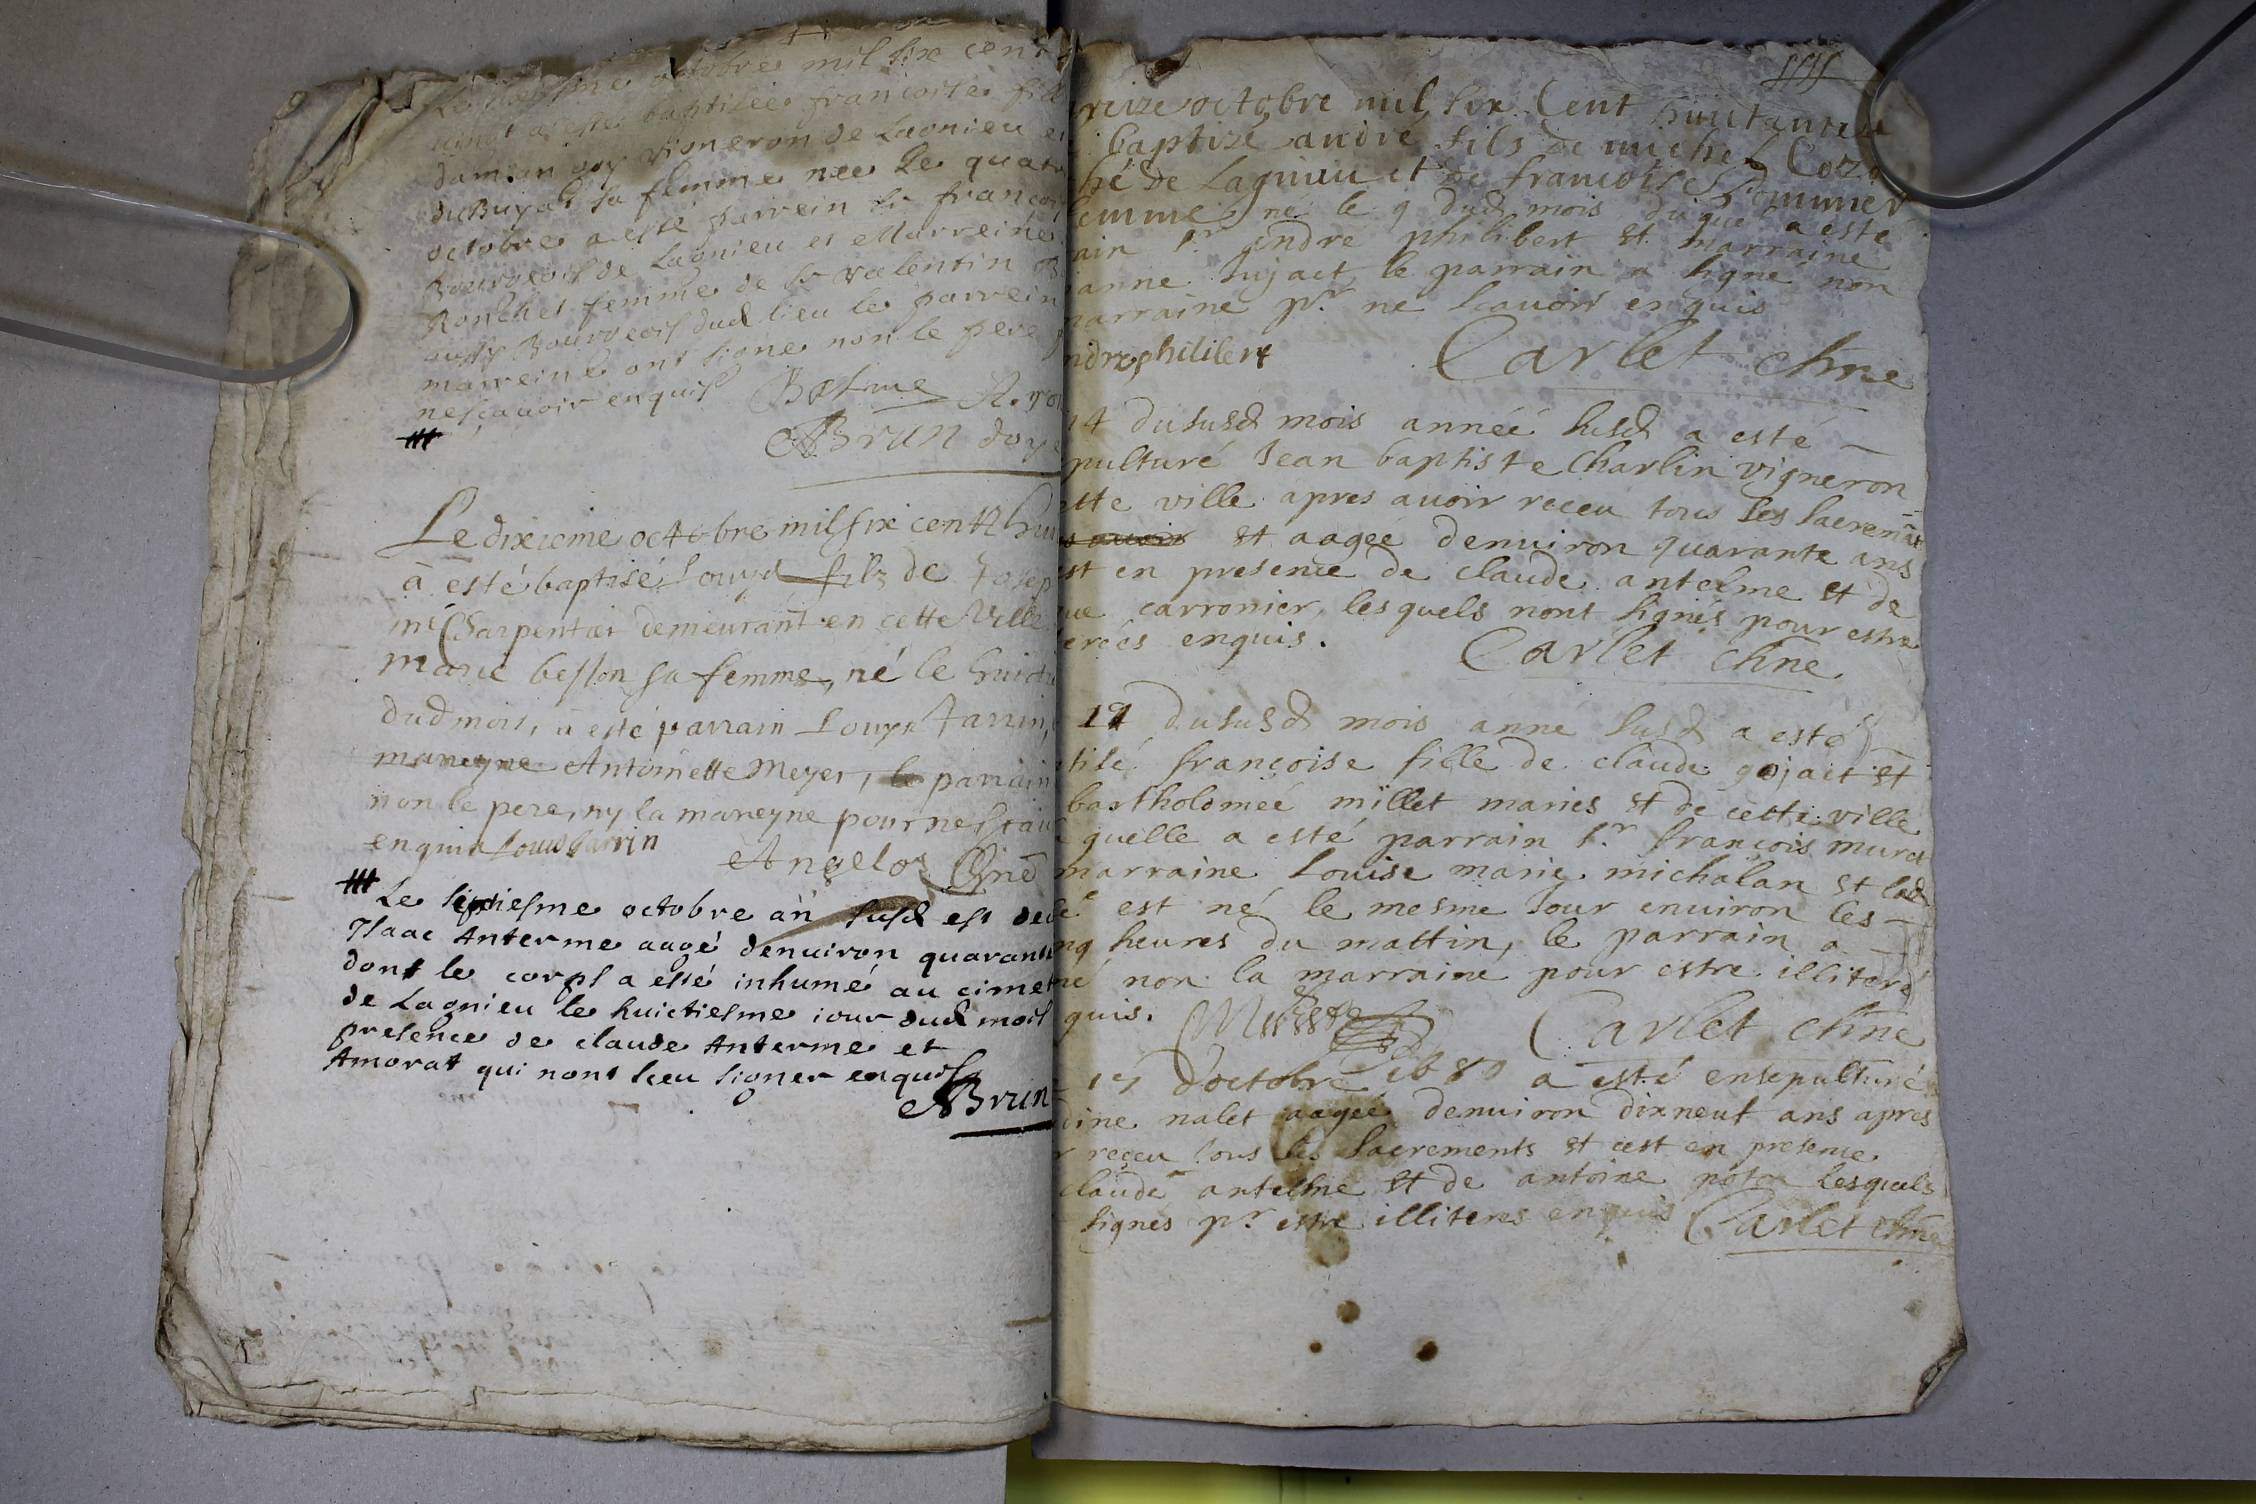 octobre mil six cent
a esté baptisée francoise fill
damian goy vigneron de Lagnieu et
duBuyat sa femme nee Le quat
octobre a esté parrein sr francoi
Bourgeois de Lagnieu et Marreine
Ronchet femme de sr valentin
aussy Bourgeois dud lieu le parrein
marreine ont signe non le pere p
nescavoir enquis
ABrun doye
Le dixieme octobre mil six cent hui
à esté baptisé Louys fils de Josep
me Charpentier demeurant en cette Ville
marie besson sa femme, né le huict
dud mois, a esté parrain Louys Jarrin,
mareyne Antoinette Meyer, le parrain
non le pere, ny la mareyne pour ne scav
enquis Louis Jarrin
Angelot Chne
Le septiesme octobre an susd est dece
Isaac Anterme aagé denuiron quarante
dont le corps a esté inhumé au cimet
de Lagnieu le huictiesme iour dud mois
presence de claude Anterme et
Amorat qui nont sceu signer enquis
ABrun
reize octobre mil six Cent huictante
baptizé andré fils de michel
hé de Lagnieu et de francoise
emme né le 9 dud mois duquel a esté
ain sr andré philibert et marraine
anne Sujact le parrain a signé non
arraine pr ne scauoir enquis
ndre philibert
Carlet chne
14 dususd mois année susd a esté
pulturé Jean baptiste Charlin vigneron
ette ville apres auoir receu tous les sacremãts
et aagéé denuiron quarante ans
st en presence de claude antelme et de
ue carronier, les quels nont signés pour estre
erées enquis.
Carlet chne
dususd mois anné susd a esté
tisé françoise fille de claude gojact et
bartholomeé millet maries et de cette ville
quelle a esté parrain sr francois muret
marraine Louise marie michalan et lad
est né le mesme Jour enuiron les
nq heures du mattin, le parrain a
né non la marraine pour estre illiteré
quis.
Carlet chne
d'octobre 1680 a esté ensepulturé
dine nalet aageé denuiron dixneuf ans apres
r reçeu tous les sacrements et cest en presence
claude antelme et de antoine lesquels
signés pr estre illiterés enquis Carlet chne